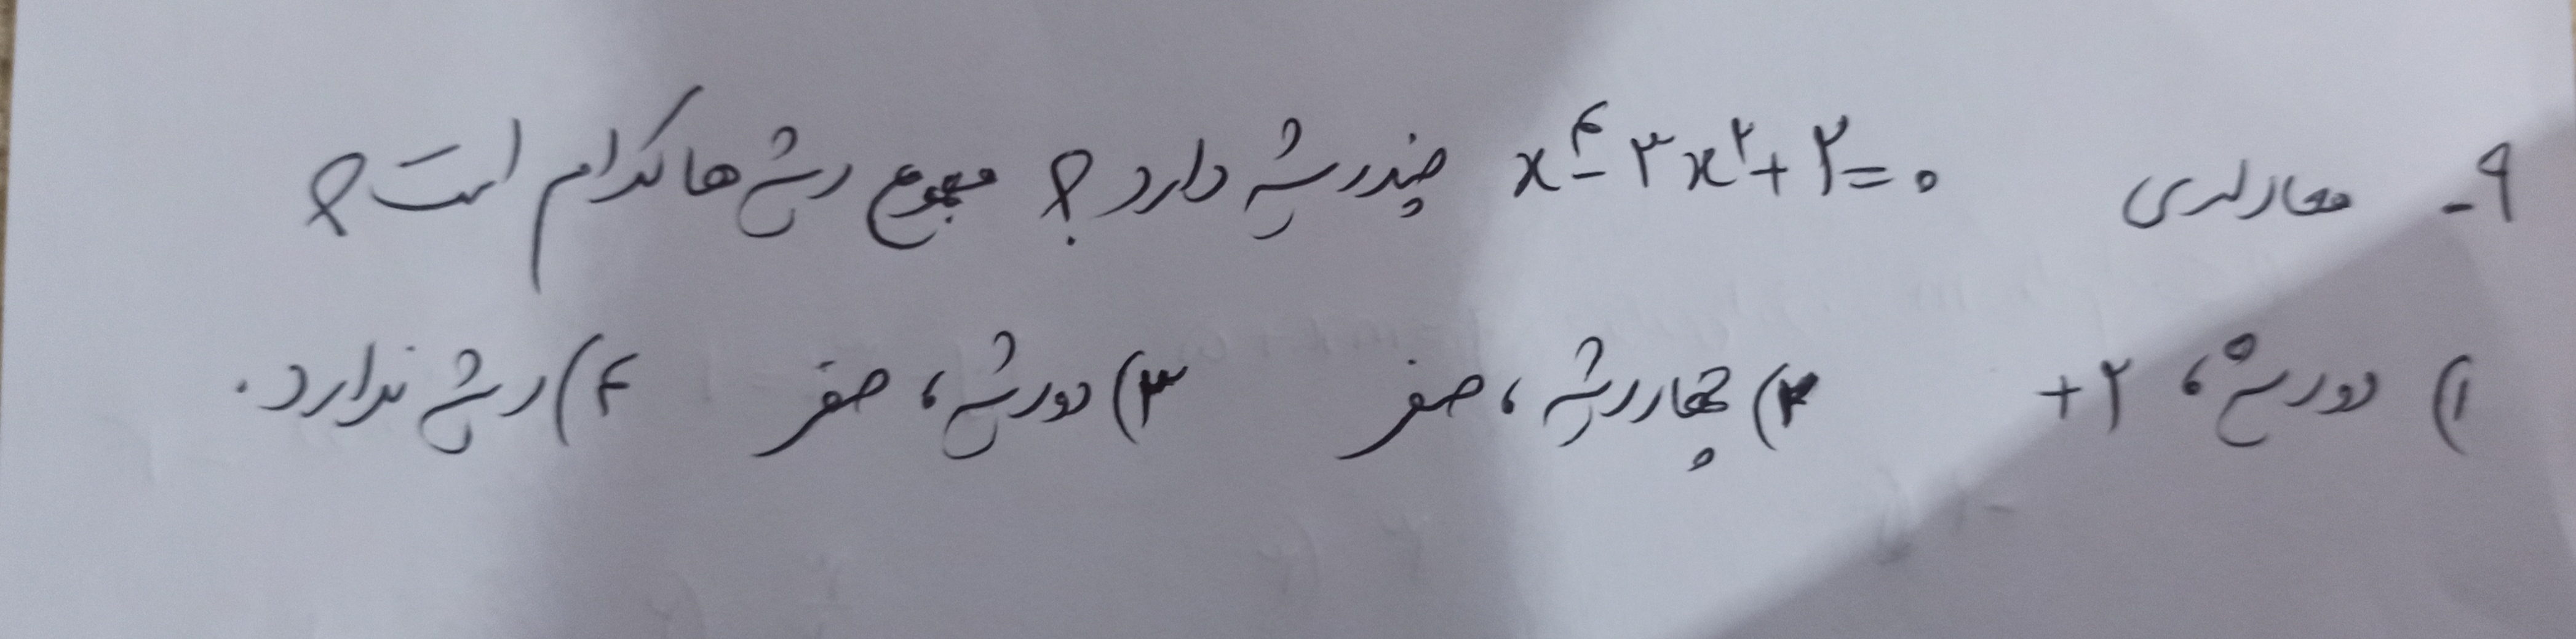 ۹- معادله‌ی x⁴-۳x²+۲=۰ چند ریشه دارد؟ مجموع ریشه‌ها کدام است؟
۱) دو ریشه، +۲ ۲) چهار ریشه، صفر ۳) دو ریشه، صفر ۴) ریشه ندارد.